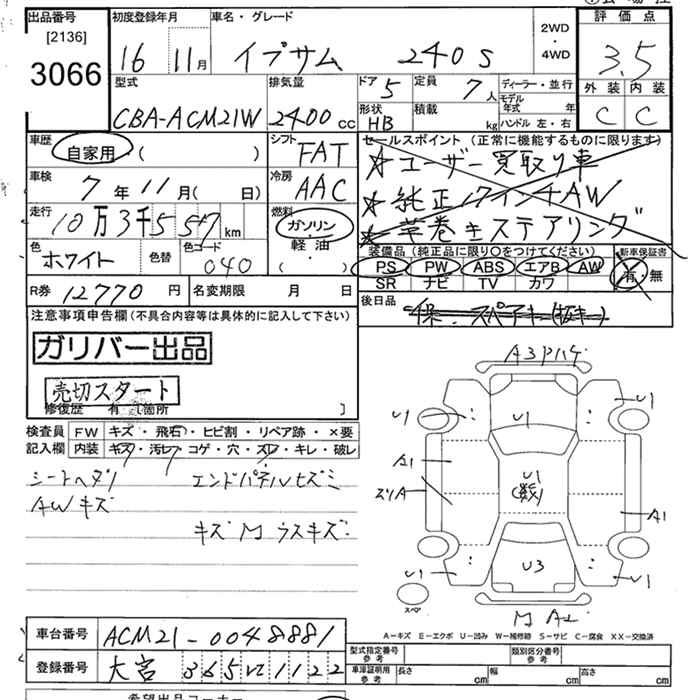 出品番号
[2136]
3066
初度登録年月
16 11月
車名・グレード
イプサム 240S
2WD
・
4WD
評価点
3.5
外装 内装
C C
型式
CBA-ACM21W
排気量
2400cc
ドア 5
定員 7人
形状
HB
積載
kg
ディーラー・並行
モデル年式 年
ハンドル 左・右
車歴
自家用・( )
シフト
FAT
車検
7年11月( 日)
冷房
AAC
走行
10万3千557km
燃料
ガソリン
軽油
( ・ )
色
ホワイト
色替
色コード
040
セールスポイント (正常に機能するものに限ります)
☆ユーザー買取り車
☆純正17インチAW
☆革巻きステアリング
装備品 (純正品に限り○をつけてください)
PS PW ABS エアB AW
SR ナビ TV カワ
新車保証書
有・無
R券 12770円
名変期限 月 日
後日品
保・スペアキー(板キー)
注意事項申告欄(不具合内容等は具体的に記入して下さい)
ガリバー出品
売切スタート
修復歴 有 [箇所 ]
検査員 FW キズ・飛石・ヒビ割・リペア跡・×要
記入欄 内装 キズ・汚レ・コゲ・穴・スレ・キレ・破レ
シートヘタリ エンドパネルヒズミ
AWキズ
キズM ウスキズ
A3Pハゲ
U1
U1
U1
A1
U1
スリA
A1
U1
U3
U1
スペア
M A2
A-キズ E-エクボ U-凹み W-補修跡 S-サビ C-腐食 XX-交換済
車台番号 ACM21-0048881
登録番号 大宮
型式指定番号
参考
類別区分番号
参考
車庫証明用
参考
長さ cm
幅 cm
高さ cm
希望出品コーナー